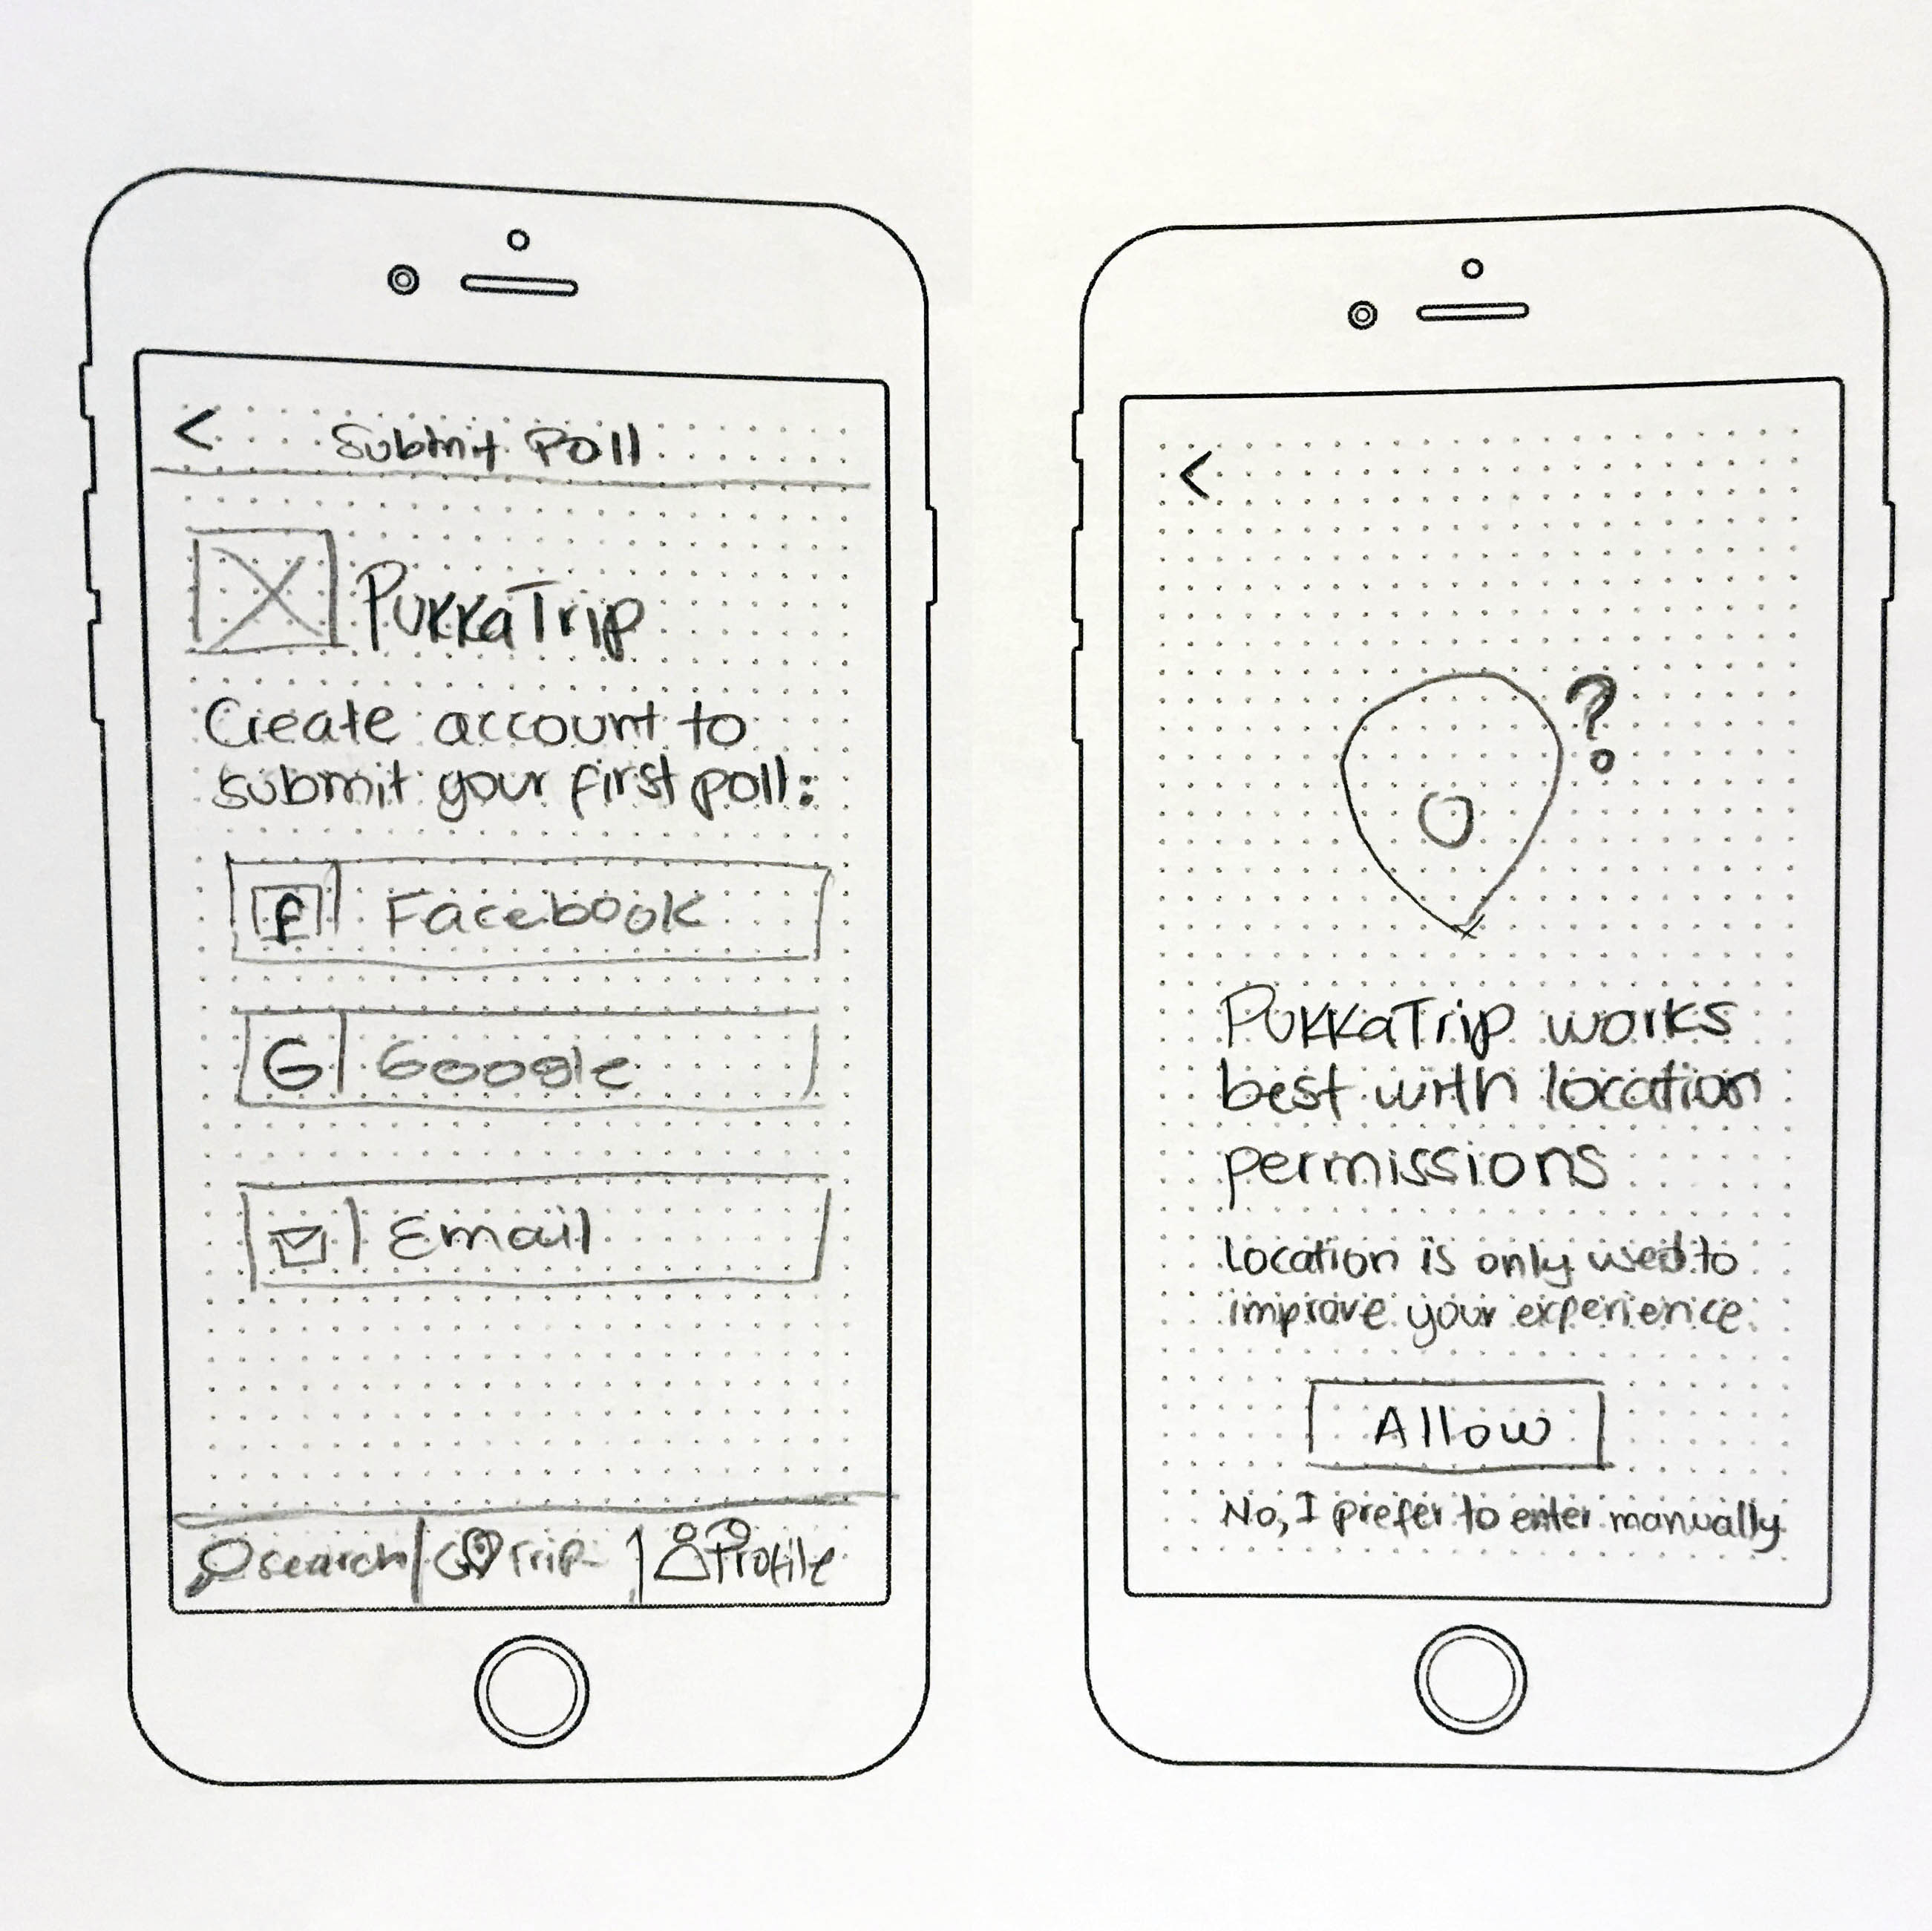 <  Submit Poll
PukkaTrip
Create account to
submit your first poll:
f Facebook
G Google
Email
search | Trip | Profile
<
?
PukkaTrip works
best with location
permissions
Location is only used to
improve your experience.
Allow
No, I prefer to enter manually